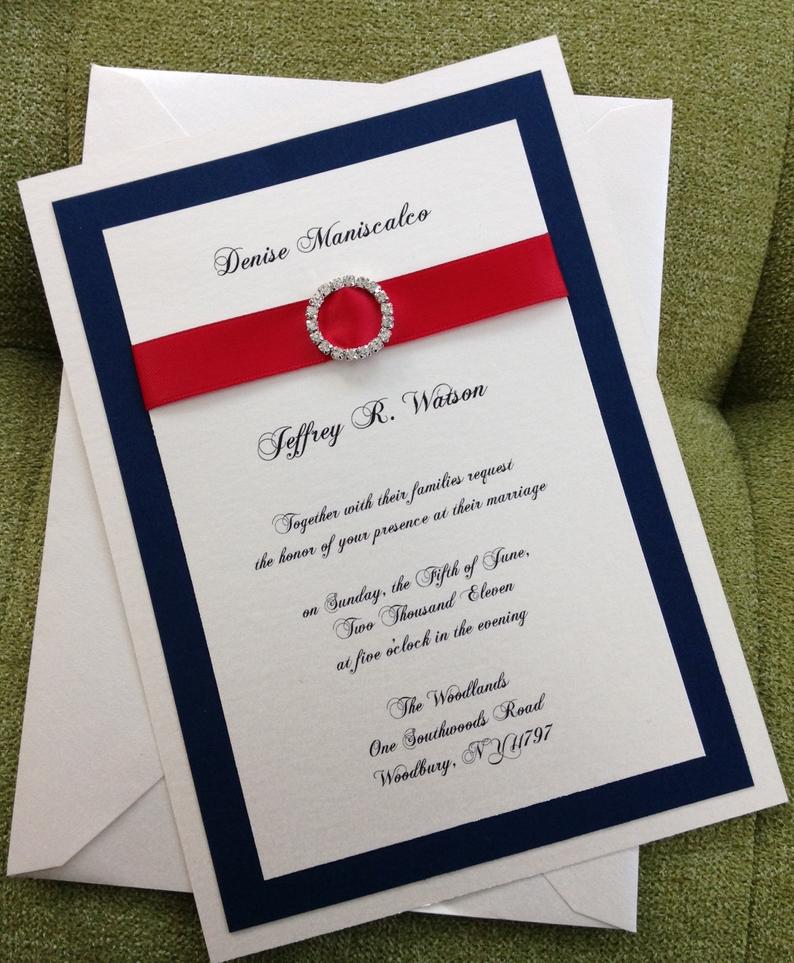 Denise Maniscalco
Jeffrey R. Watson
Together with their families request
the honor of your presence at their marriage
on Sunday, the Fifth of June,
Two Thousand Eleven
at five o'clock in the evening
The Woodlands
One Southwoods Road
Woodbury, NY 11797